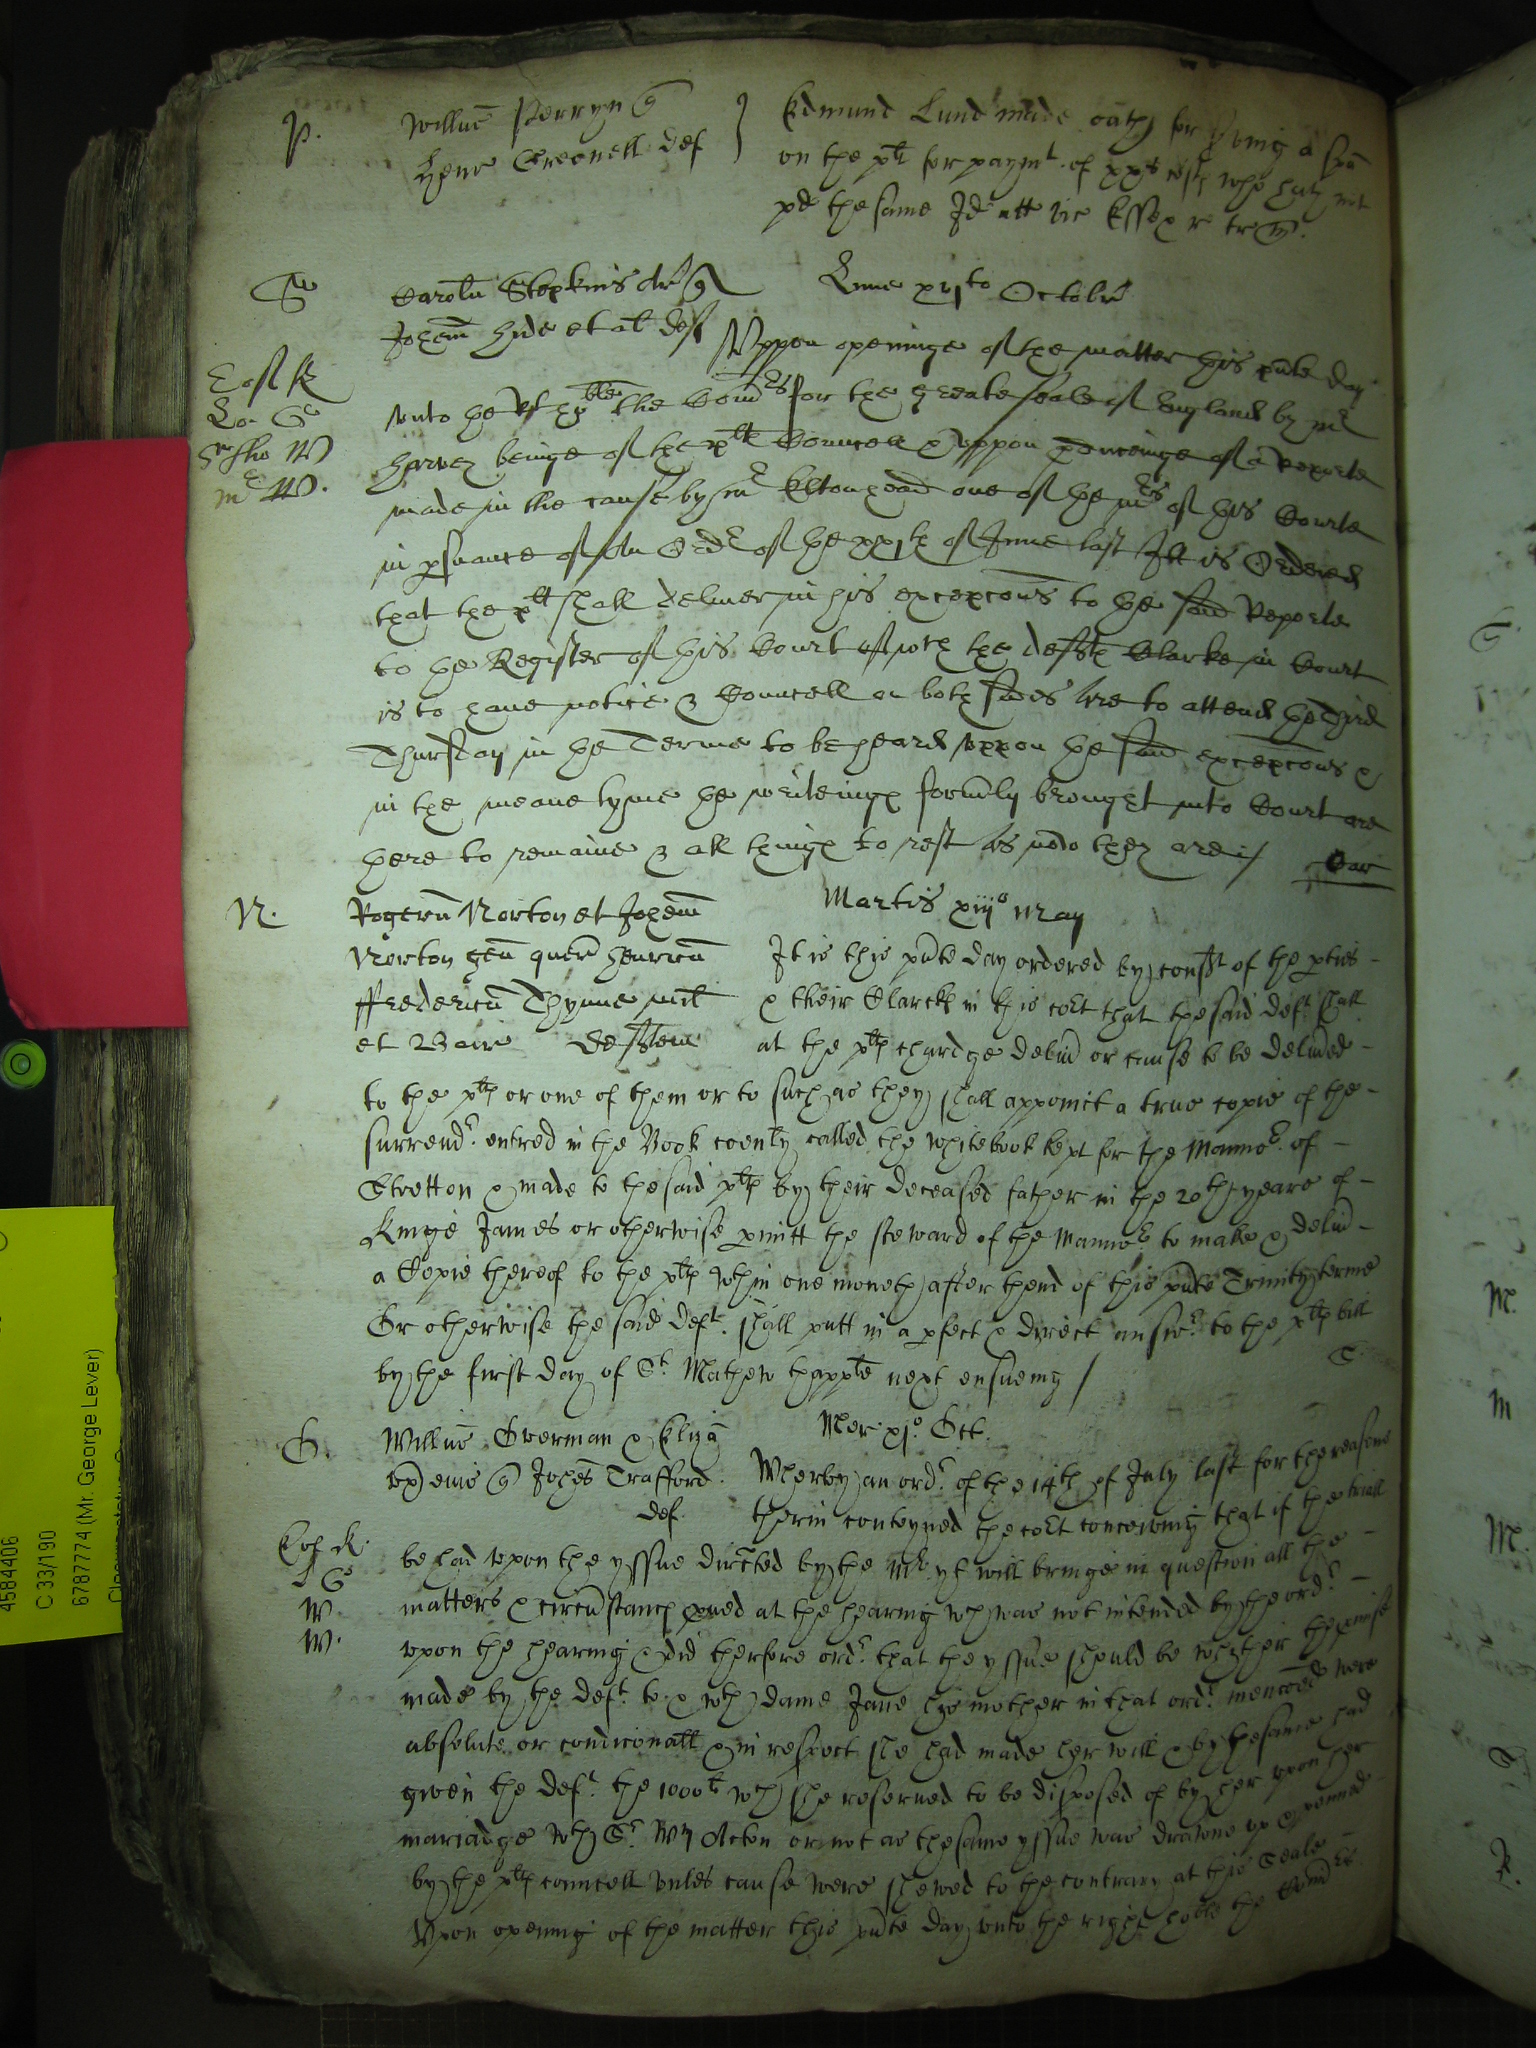 P. Willm Perryn q
Henr Grenell def } Edmund Lund made oath for servinge a spa
on the plt for paymt of xxs costs who hath not
pd the same Id att vic Essex re trin.
Carolu Stepkins Ar q Lune xvjto Octobr
Johem Hide et al deft Uppon openinge of the matter this pnte day
Earl K unto the Rt hoble the Comrs for the greate seale of England by mr
Harvey beinge of the plts Councell & uppon readinge of a Reporte
made in the cause by mr Eltonhead one of the mrs of this Courte
in psuance of An Ordr of the xxjth of June last Itt is Ordered
that the plt shall deliver in his excepcons to the said Reporte
to the Register of this Court of wch the defts Clarke in Court
is to have notice & Councell on both sides Are to attend the Third
Thursday in the Terme to be heard uppon the said excepcons &
in the meane tyme the writeings formly brought into Court are
there to remaine & all things to rest As now they are /
N. Rogeru Norton et Johem Martis xiijo May
Norton gen quer Henricu It is this pnte day ordered by consent of the pties
ffredericu Thynne milt & their Clarcks in this cort that the said deft shall
et Baro Deften at the plts chardge delivr or cause to be delivred
to the plts or one of them or to such as they shall appoint a true copie of the
surrendr entred in the Book coenly called the whitebook kept for the Mannor of
Stretton & made to the said plts by their deceased father in the 20th yeare of
Kinge James or otherwise pmitt the steward of the Mannor to make & delivr
a Copie thereof to the plts wthin one moneth after thend of this pnte Trinity terme
Or otherwise the said deft shall putt in a pfect & direct answr to the plts bill
by the first day of St Mathew thapple next ensueing /
G. Willm Gverman & Eliza Mer xjo Oct.
ux eius q Johes Trafford Wherby an ordr of the 14th of July last for the reasons
def. therin conteyned the cort conceiving that if the triall
be had upon the yssue directed by the Mr yt will bringe in question all the
W. matters & circumstancs pved at the hearing wch was not intended by the ordr
W. upon the hearing & did therfore ordr that the yssue should be whether the pmise
made by the deft to & wth dame Jane his mother in that ordr menconed were
absolute or condiconall & in respect she had made her will & by the same had
given the deft the 1000l wch she reserved to be disposed of by her upon her
mariadge wth Sr Wm Acton or not as the same yssue was drawne up & penned
by the plts councell unles cause were shewed to the contrary at this Seale
Upon opening of the matter this pnte day unto the right hoble the Comrs
4584406
C 33/190
6787774 (Mr. George Lever)